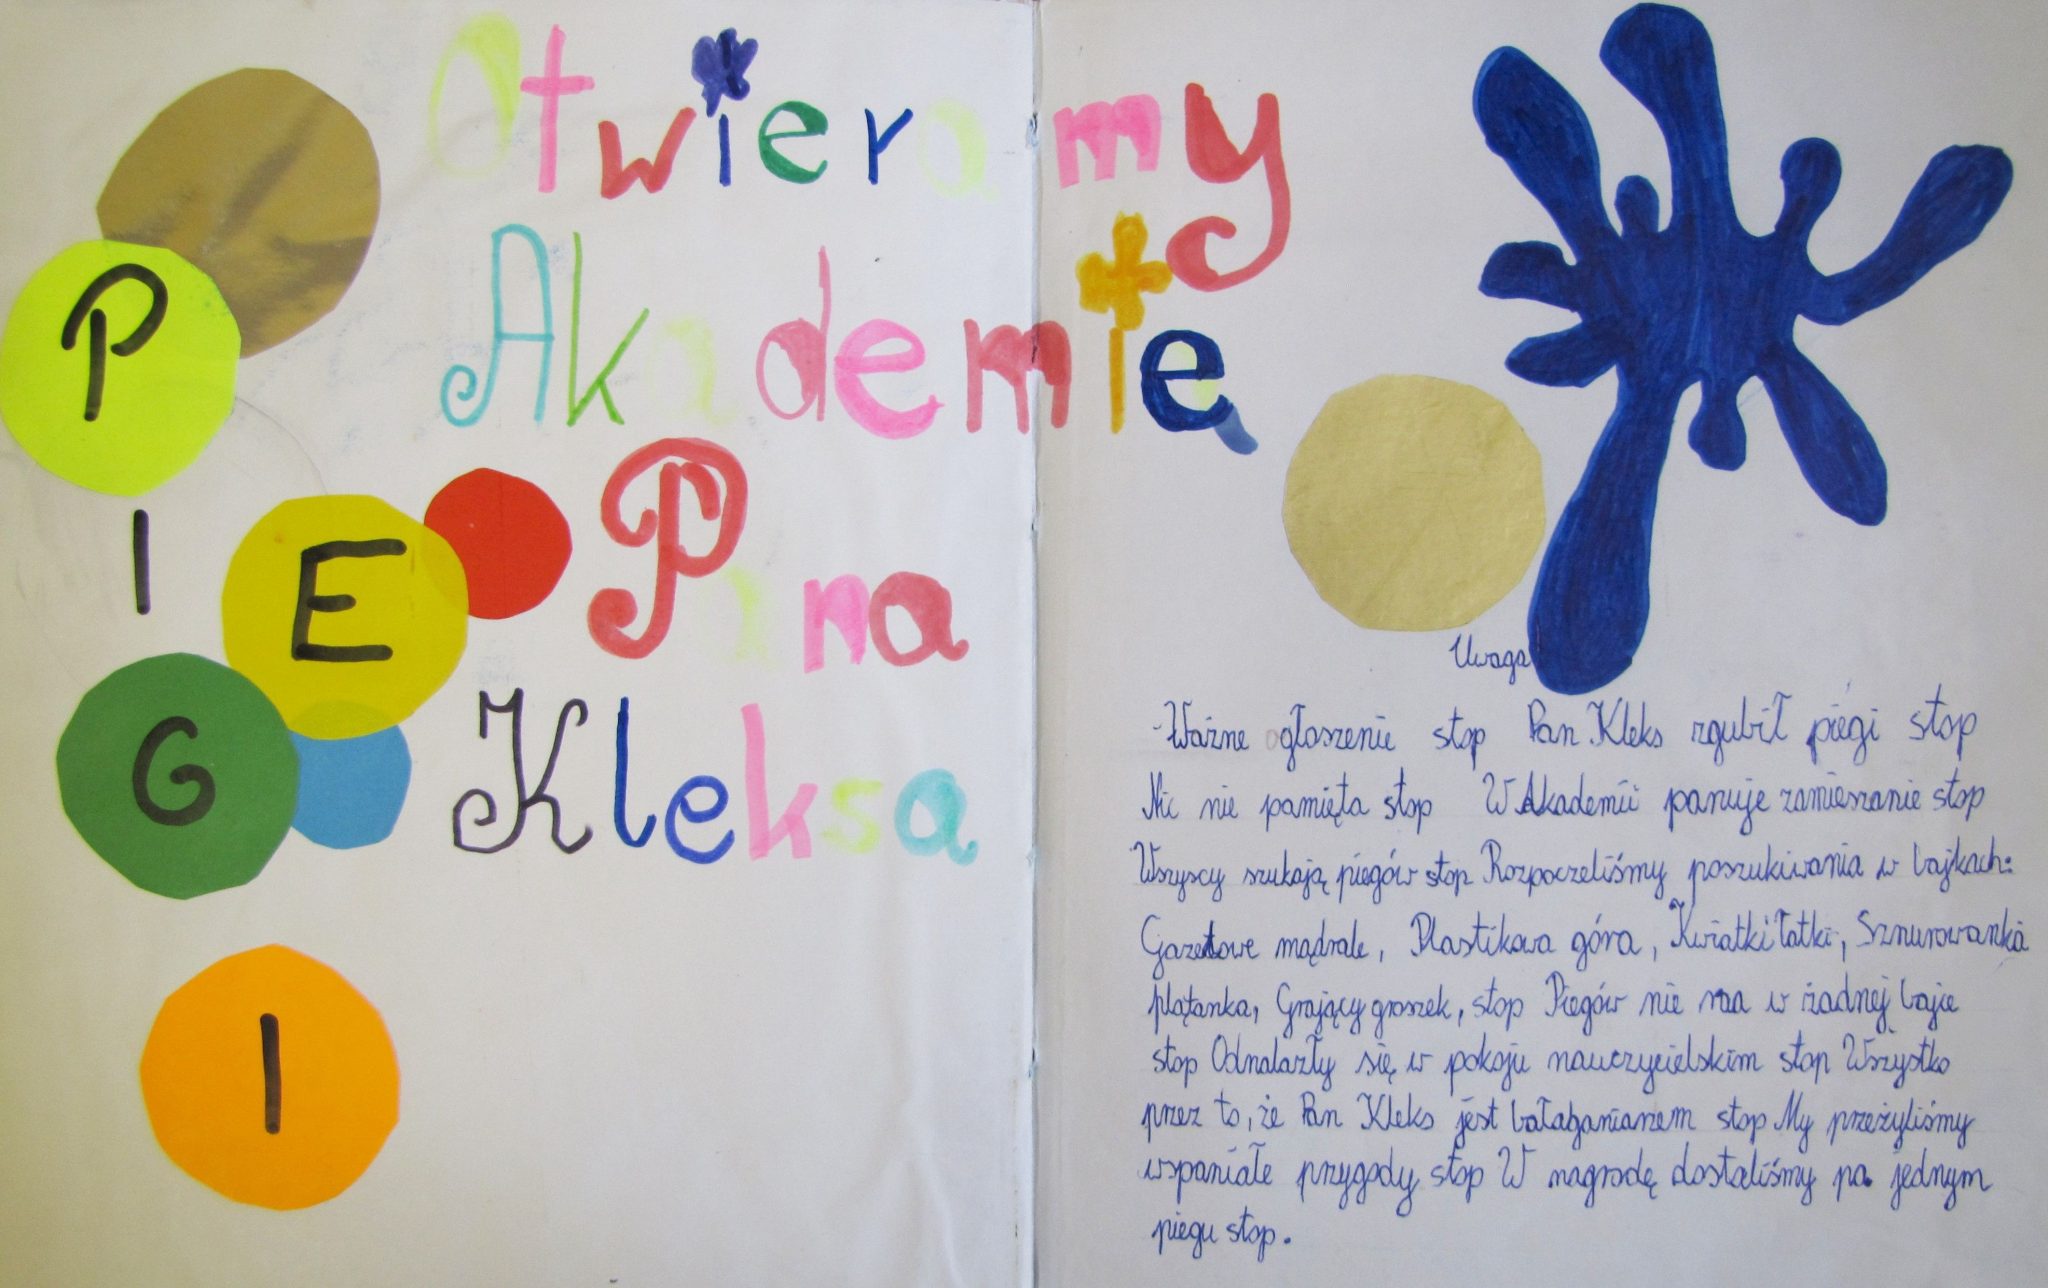 Otwieramy
Akademię
Pana
Kleksa
P
I
E
G
I
Uwaga
Ważne ogłoszenie stop Pan Kleks zgubił piegi stop
Nic nie pamięta stop W Akademii panuje zamieszanie stop
Wszyscy szukają piegów stop Rozpoczeliśmy poszukiwania w bajkach:
Gazetowe mądrale, Plastikowa góra, Kwiatki łatki, Sznurowanka
plątanka, Grający groszek, stop Piegów nie ma w żadnej bajce
stop Odnalazły się w pokoju nauczycielskim stop Wszystko
przez to, że Pan Kleks jest bałaganiarzem stop My przeżyliśmy
wspaniałe przygody stop W nagrodę dostaliśmy po jednym
piegu stop.